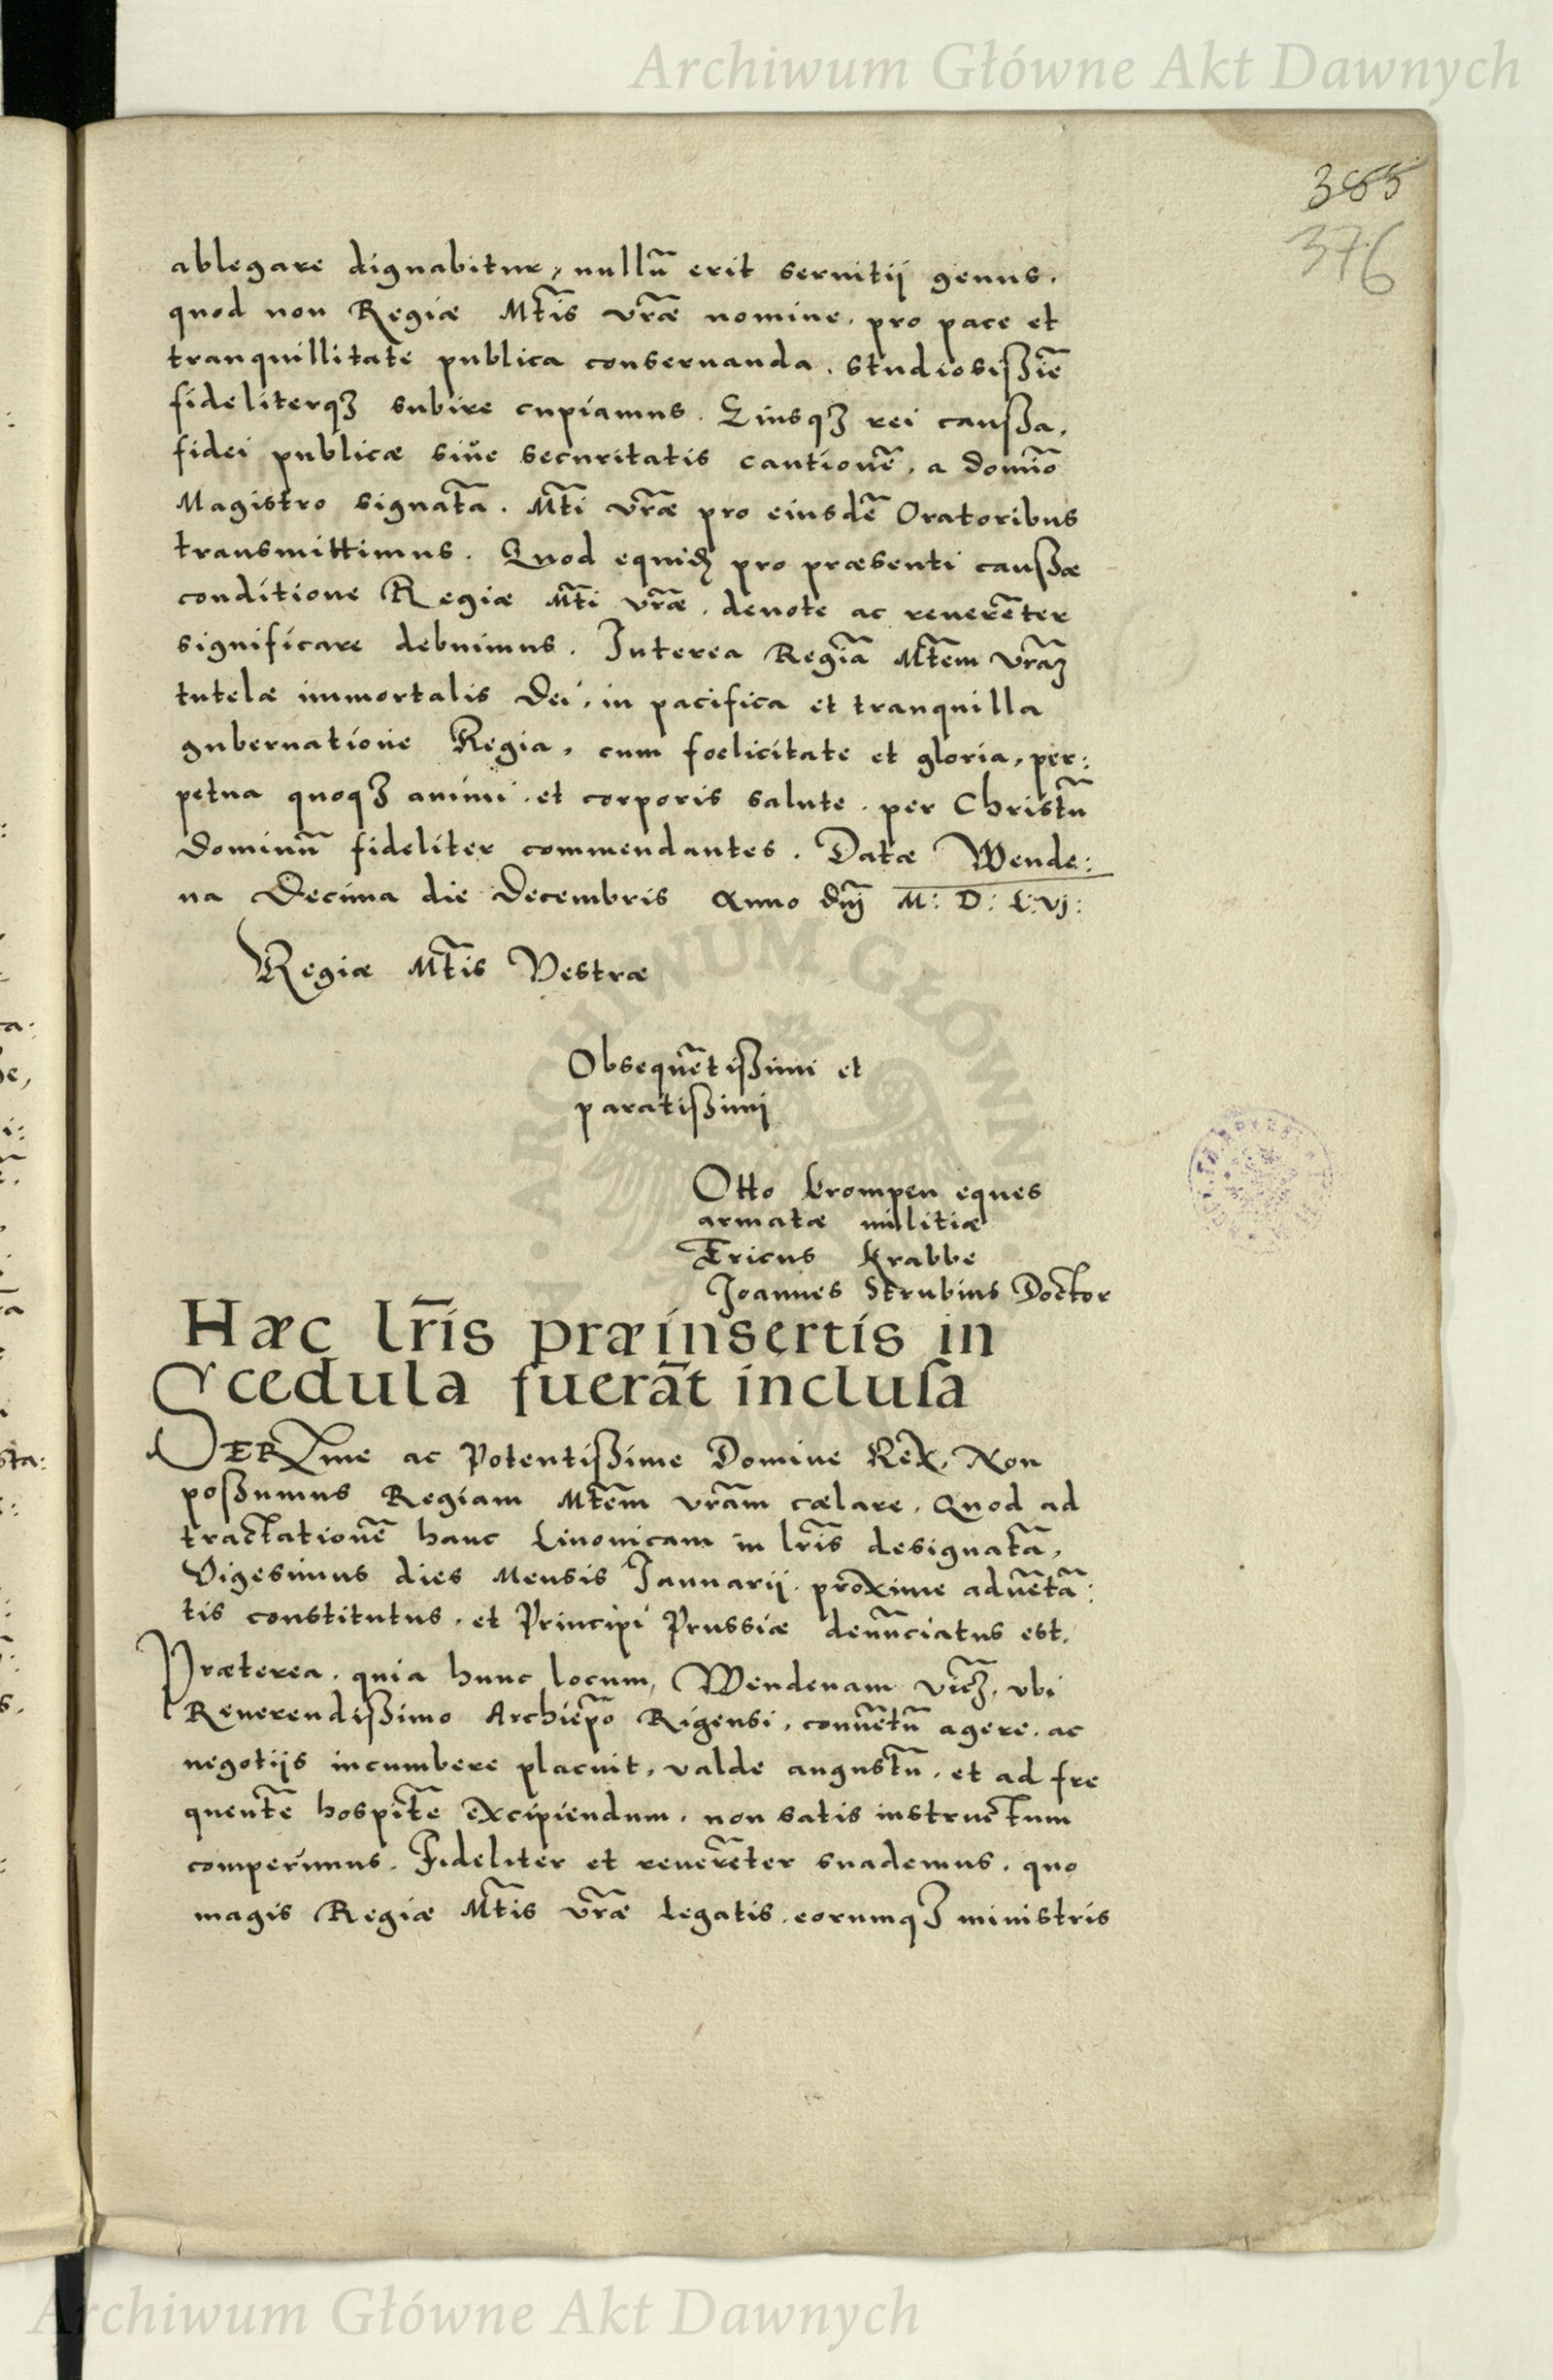 Archiwum Główne Akt Dawnych
385
376
ablegare dignabitur, nullũ erit seruitij genus.
quod non Regiæ Mt̃is vr̃æ nomine. pro pace et
tranquillitate publica conseruanda. studiosißiẽ
fideliterqꝫ subire cupiamus. Eiusqꝫ rei caußa.
fidei publicæ siue securitatis cautionẽ, a domĩo
Magistro signatã. Mt̃i vr̃æ pro eiusdẽ Oratoribus
transmittimus. Quod equidẽ pro præsenti caußæ
conditione Regiæ Mt̃i vr̃æ. deuote ac reuerẽter
significare debuimus. Interea Regiã Mt̃em vr̃aꝫ
tutelæ immortalis Dei, in pacifica et tranquilla
gubernatione Regia, cum foelicitate et gloria, per:
petua quoqꝫ animi. et corporis salute. per Christũ
Dominũ fideliter commendantes. Datæ Wende:
na Decima die Decembris Anno dñj M: D: L: vj:
Regiæ Mt̃is Vestræ
Obsequẽtißimi et
paratißimj
Otto Krompen eques
armatæ militiæ
Ericus Krabbe
Joannes Strubius Doctor
Hæc lr̃is præinsertis in
Scedula fuerãt inclusa
SERXme ac Potentißime Domine Rex. Non
poßumus Regiam Mt̃em vr̃am cælare. Quod ad
tractationẽ hanc Liuonicam in lr̃is designatã,
Vigesimus dies Mensis Januarij. proxime aduẽtã:
tis constitutus. et Principi Prussiæ denũciatus est.
Præterea. quia hunc locum, Wendenam vicꝫ, vbi
Reuerendißimo Archiep̃o Rigensi, conuẽtũ agere. ac
negotijs incumbere placuit, valde angustũ. et ad fre
quentẽ hospitẽ excipiendum. non satis instructum
comperimus. Fideliter et reuerẽter suademus. quo
magis Regiæ Mt̃is vr̃æ Legatis. eorumqꝫ ministris
Archiwum Główne Akt Dawnych